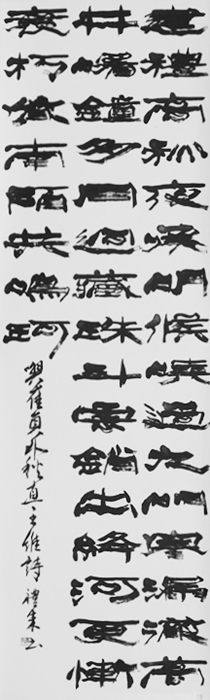 建禮高秋夜承明候曉過九門寒漏徹萬
井曙鐘多月迥藏珠斗雲消出絳河更慚
衰朽質南陌共鳴珂
與崔員外秋直王維詩